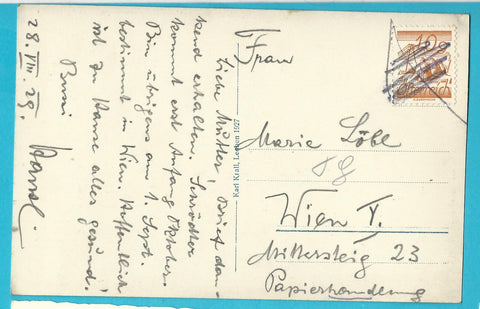 28. VIII. 29.
Liebe Mutter! Brief dan-
kend erhalten. Schrödter
kommt erst Anfang Oktober.
Bin übrigens am 1. Sept.
bestimmt in Wien. Hoffentlich
ist zu Hause alles gesund.
Bussi
Hansl
Karl Krall, Leoben 1927
10
Frau
Marie Löbl
Wien V.
Mittersteig 23
Papierhandlung